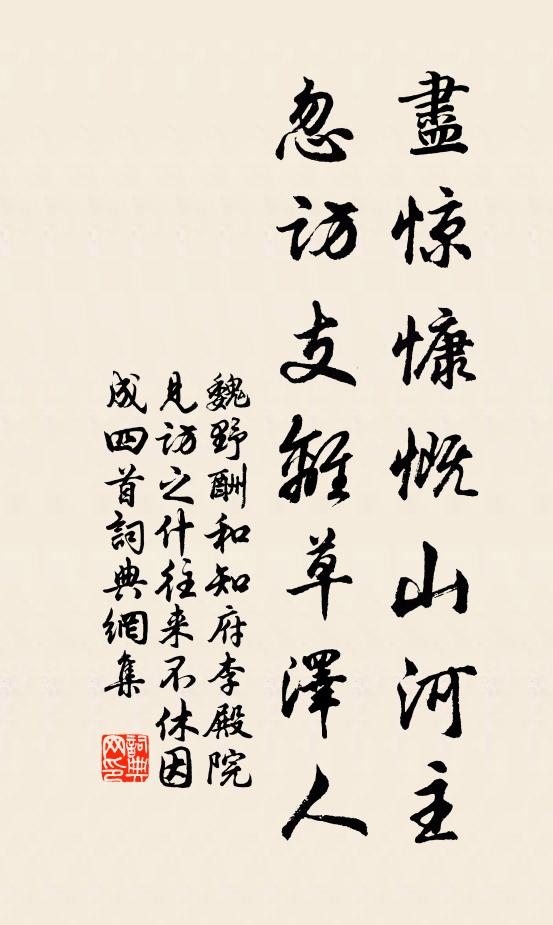 盡惊慷慨山河主
忽訪支離草澤人
魏野酬和知府李殿院
見訪之什往来不休因
成四首詞典網集
詞典網印